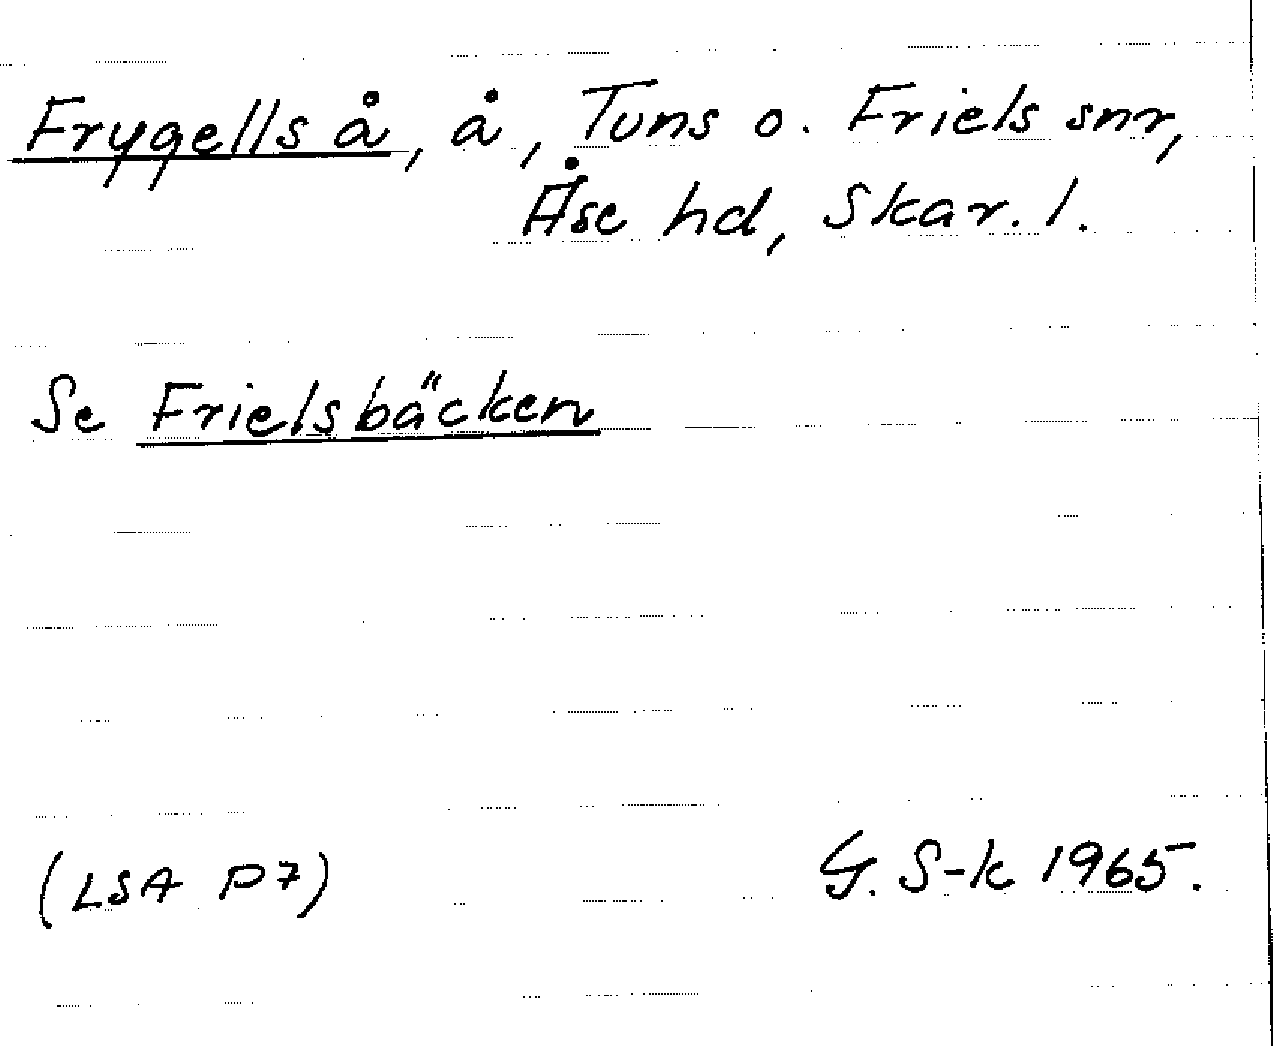 Frygells å, å, Tuns o. Friels snr,
Åse hd, Skar. l.
Se Frielsbäcken
(LSA P7)
G. S-k 1965.